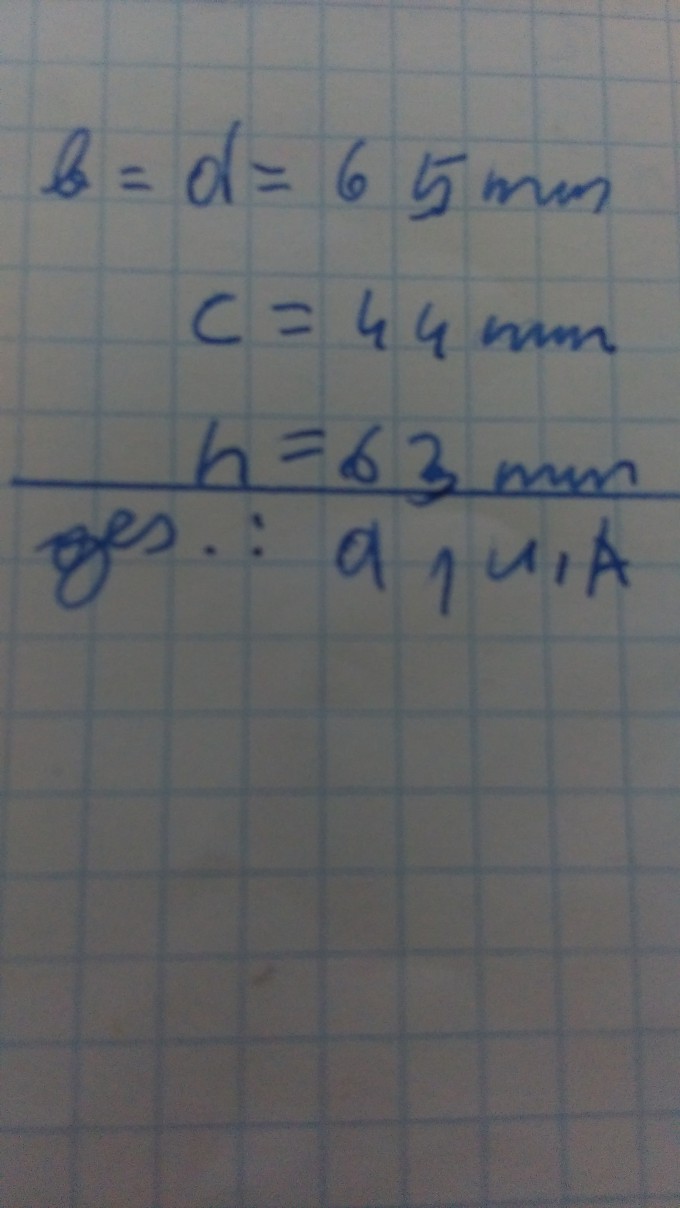 b = d = 65 mm
c = 44 mm
h = 63 mm
ges.: a, u, A